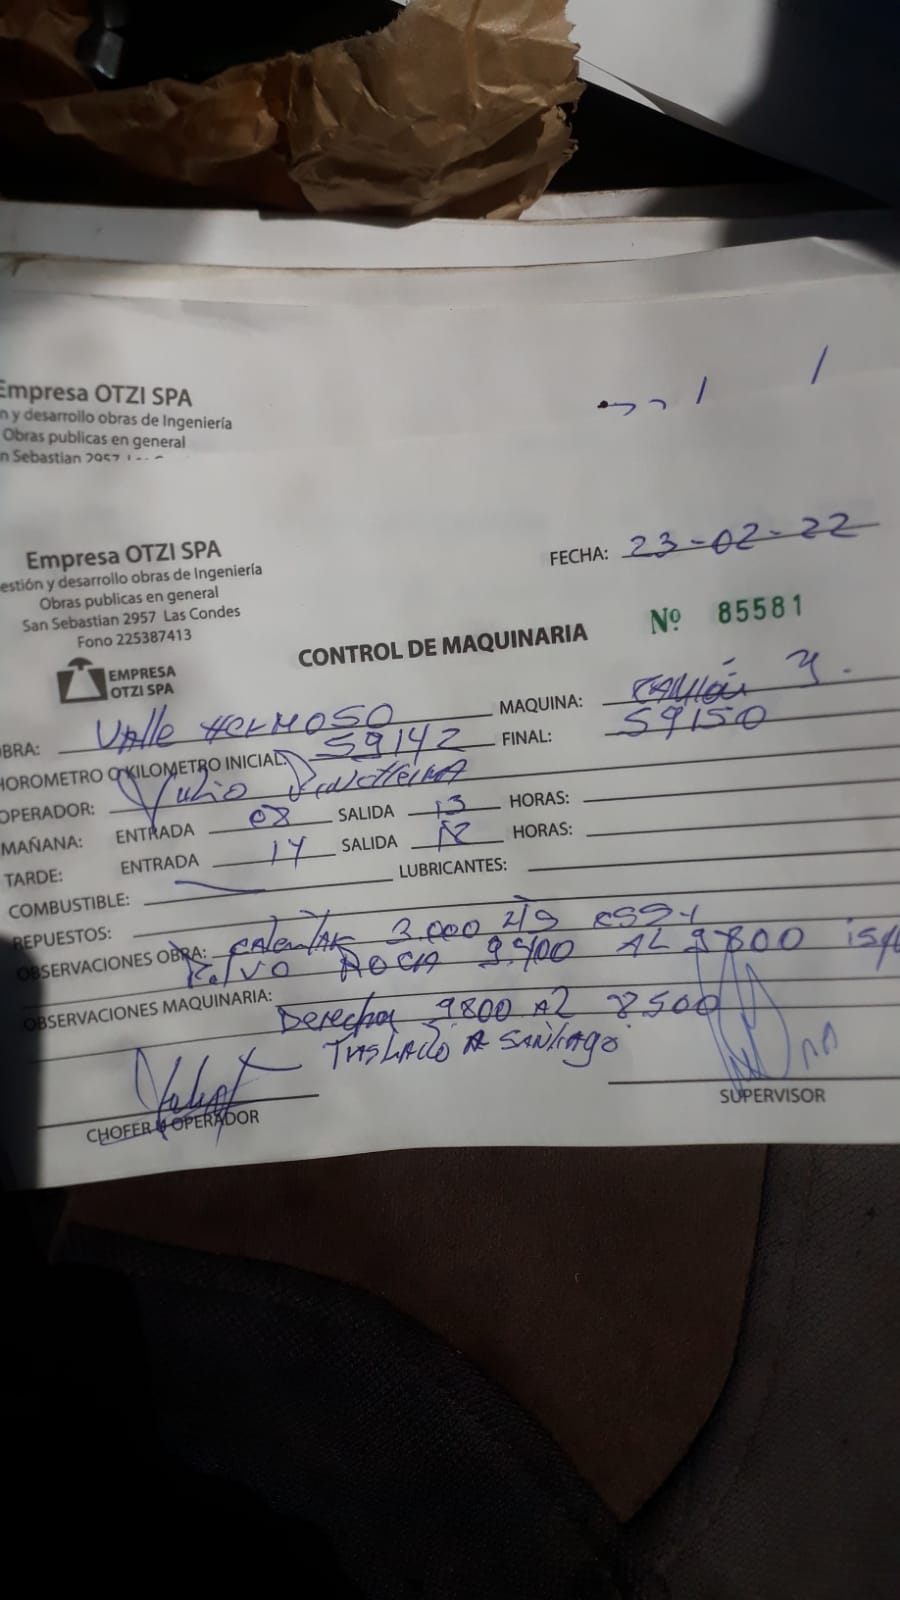 Empresa OTZI SPA
n y desarrollo obras de Ingeniería
Obras publicas en general
n Sebastian 2957
Empresa OTZI SPA
estión y desarrollo obras de Ingeniería
Obras publicas en general
San Sebastian 2957 Las Condes
Fono 225387413
EMPRESA
OTZI SPA
FECHA: 23-02-22
Nº 85581
CONTROL DE MAQUINARIA
BRA: Valle Hermoso MAQUINA: CAMIÓN
HOROMETRO O KILOMETRO INICIAL: 59142 FINAL: 59150
OPERADOR: Julio
MAÑANA: ENTRADA 08 SALIDA 13 HORAS:
TARDE: ENTRADA 14 SALIDA HORAS:
COMBUSTIBLE: LUBRICANTES:
REPUESTOS:
OBSERVACIONES OBRA: Calentar 3.000 CSS-1
Polvo ROCA 9.400 AL 9800
OBSERVACIONES MAQUINARIA:
Derecha 9800 AL 8500
TRASLADO A SANTIAGO
CHOFER U OPERADOR
SUPERVISOR